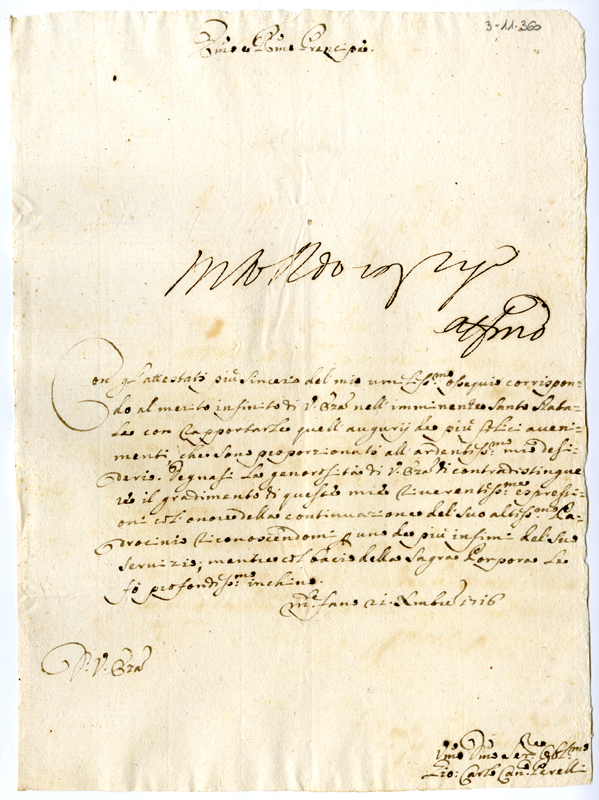 3-11-360
Em̃o e Rm̃o Prencipe.
affm̃o
Con gl'attestati più sinceri del mio umiliss.mo ossequio corrispon-
do al merito infinito di V. Em̃za nell'imminente Santo Nata-
le con rapportarle quell'augurij de più felici aveni-
menti che sono proporzionati all'ardentiss.mo mio desi-
derio. Degnasi la generosità di V. Em̃za di contradistingue-
re il gradimento di queste mie riverentiss.me espressi-
oni coll'onore della continuazione del Suo altiss.mo Pa-
drocinio riconoscendomi uno de più infimi del Suo
servizio; mentre col bacio della Sagra Porpora le
fò profondiss.mo inchino.
Fano 21 Xmbre 1716
D. V. Em̃za
Vm̃o Dm̃o Ser.e Obl.mo
Gio: Carlo Can. Perelli